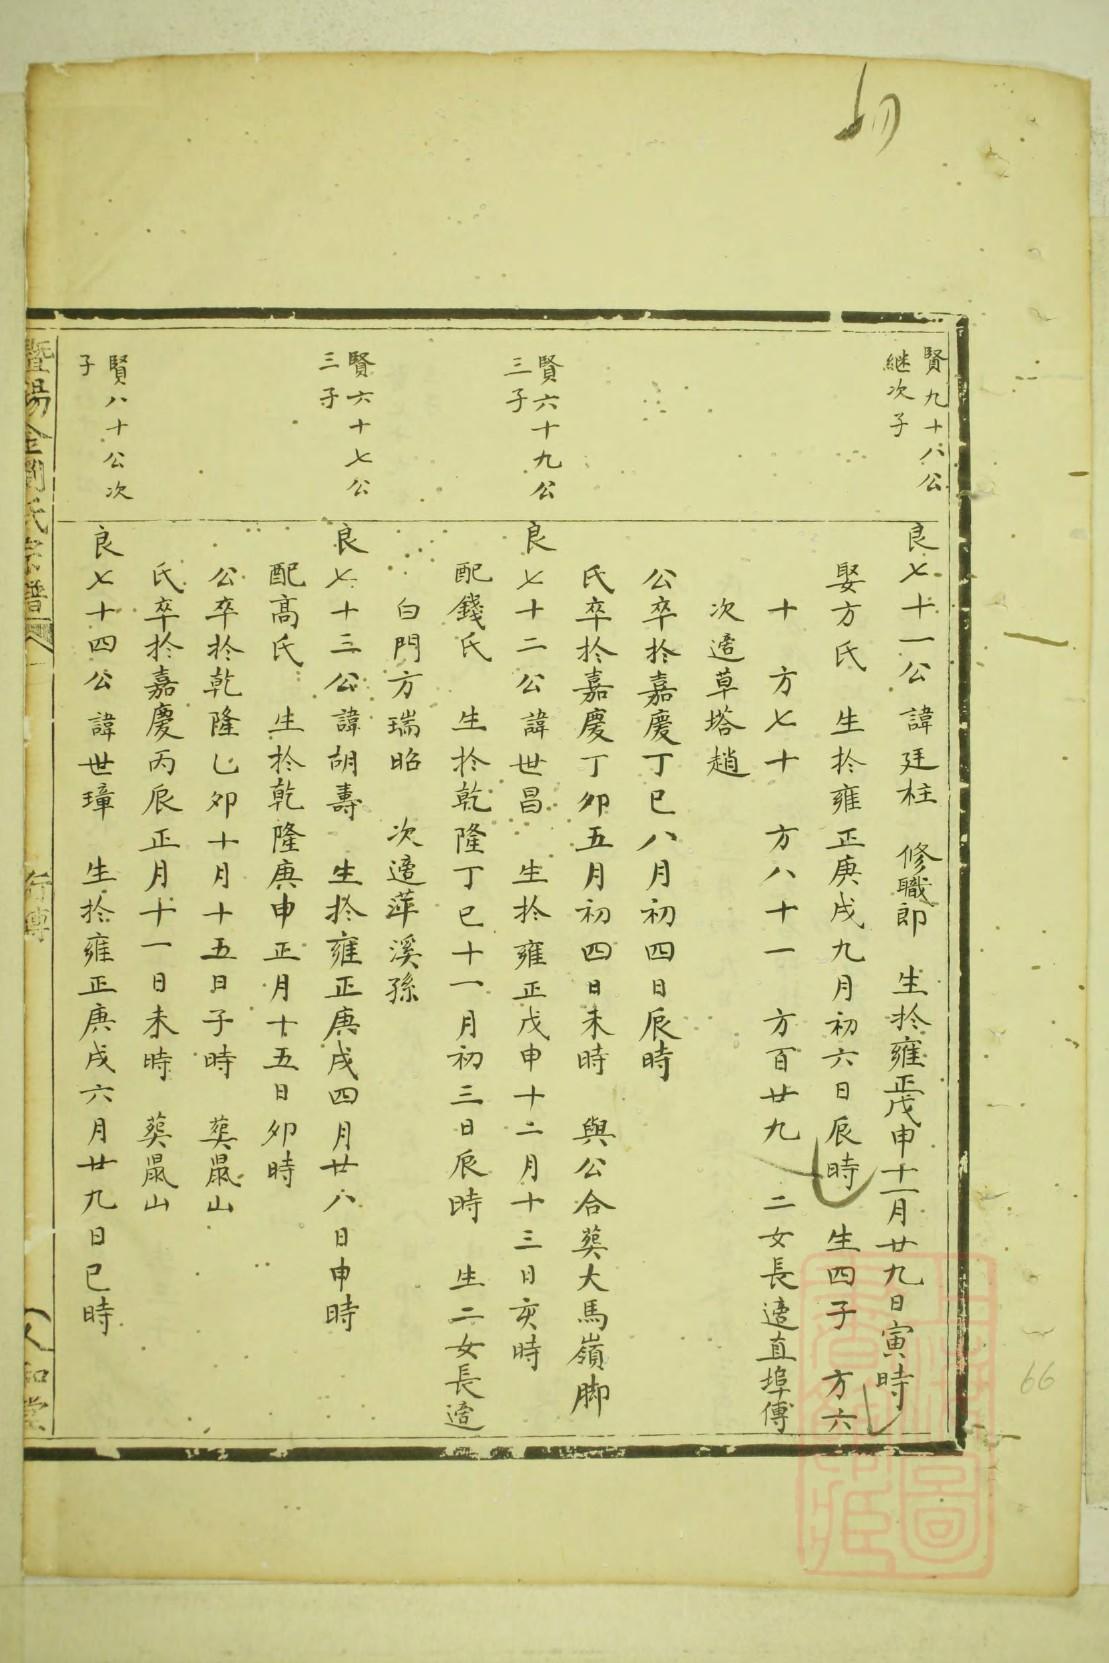 賢九十八公
継次子
良七十一公諱廷柱 修職郎 生扵雍正戊申十一月廿九日寅時
娶方氏 生扵雍正庚戌九月初六日辰時 生四子 方六
十 方七十 方八十一 方百廿九 二女長適直埠傅
次適草塔趙
公卒扵嘉慶丁巳八月初四日辰時
氏卒扵嘉慶丁卯五月初四日未時 與公合葬大馬嶺脚
賢六十九公
三子
良七十二公諱世昌 生扵雍正戊申十二月十三日亥時
配錢氏 生扵乾隆丁巳十一月初三日辰時 生二女長適
白門方瑞昭 次適萍溪孫
賢六十七公
三子
良七十三公諱胡壽 生扵雍正庚戌四月廿八日申時
配高氏 生扵乾隆庚申正月十五日卯時
公卒扵乾隆乙卯十月十五日子時 葬鼠山
氏卒扵嘉慶丙辰正月十一日未時 葬鼠山
賢八十公次
子
良七十四公諱世璋 生扵雍正庚戌六月廿九日巳時
暨陽金澗氏宗譜
行傳
人和堂
66